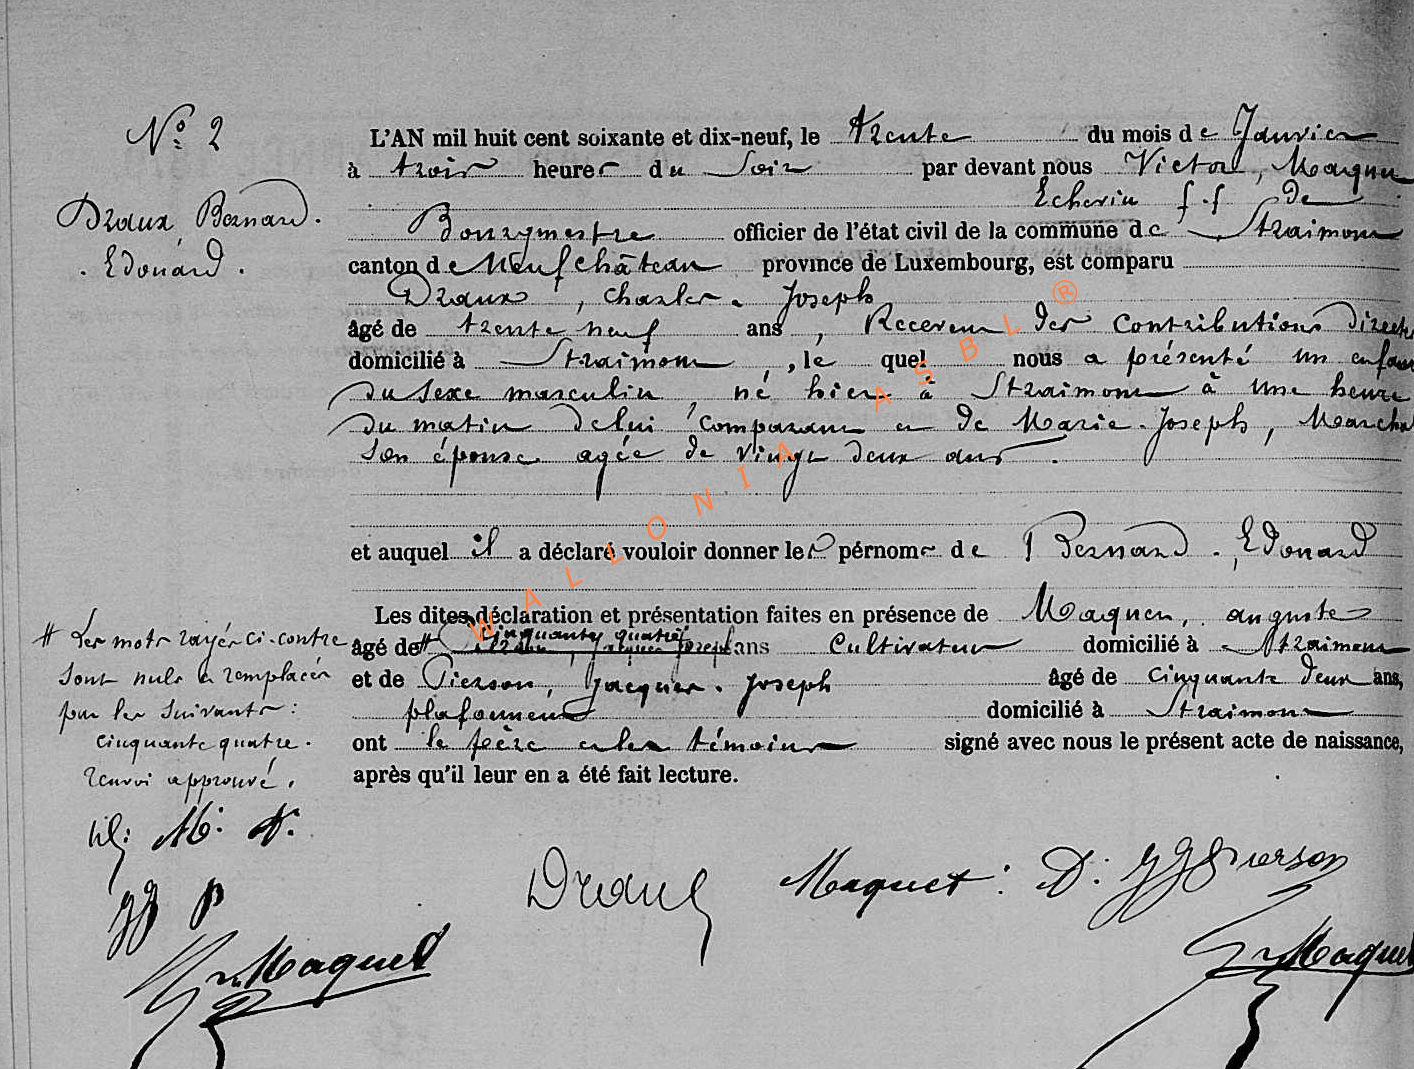 N° 2
Draux, Bernard.
. Edouard .
L'AN mil huit cent soixante et dix-neuf, le trente du mois de Janvier
à trois heures du Soir par devant nous Victor, Maquet
Echevin f.f de
Bourgmestre officier de l'état civil de la commune de Straimont
canton de Neufchâteau province de Luxembourg, est comparu
Draux, charles - Joseph
âgé de trente neuf ans, Receveur des contributions Directes
domicilié à Straimont, le quel nous a présenté un enfant
du Sexe masculin né hier à Straimont à une heure
du matin de lui Comparant et de Marie-Joseph, Marchal
Son épouse agée de vingt deux ans.
et auquel il a déclaré vouloir donner les pérnoms de Bernard . Edouard
Les dites déclaration et présentation faites en présence de Maquet, auguste
âgé de # cinquante quatre ans Cultivateur domicilié à Straimont
et de Pierson, Jacques - Joseph âgé de cinquante deux ans,
plafonneur domicilié à Straimont
ont le père et les témoins signé avec nous le présent acte de naissance,
après qu'il leur en a été fait lecture.
# Les mots rayés ci-contre
sont nuls et remplacés
par les suivants :
cinquante quatre .
renvoi approuvé .
M. D.
JJ P
V Maquet
Draux
Maquet : D : JJ Pierson
V Maquet
WALLONIA ASBL ®